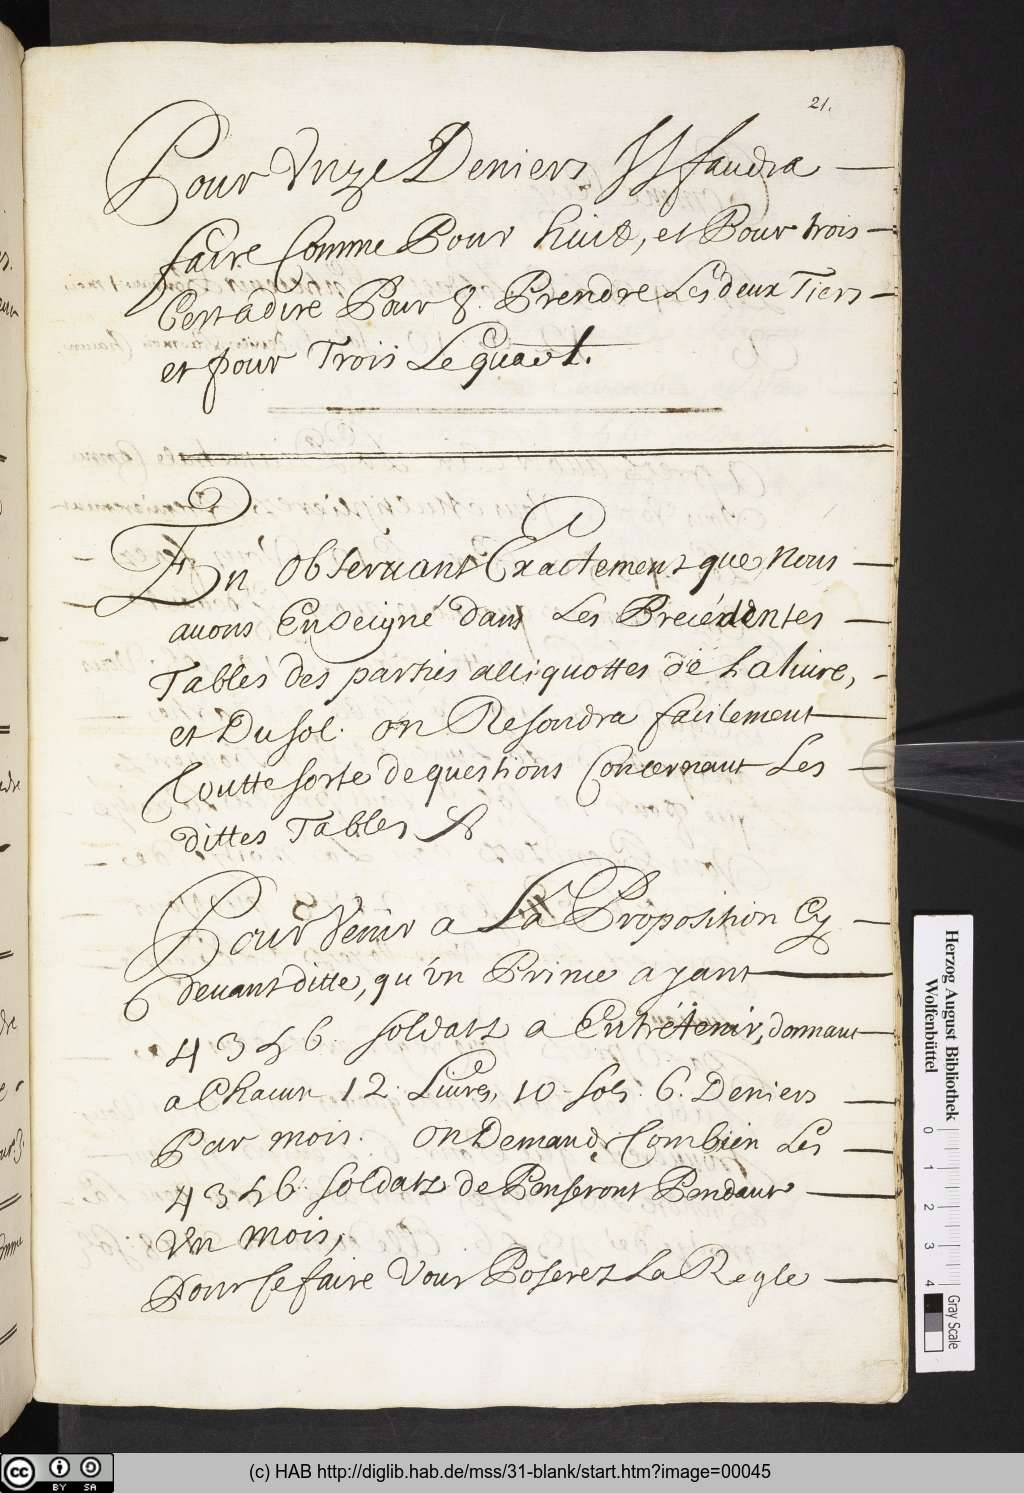 21.
Pour Vnze Deniers Il faudra
faire Comme Pour huit, et Pour trois
C'est adire Pour 8. Prendre Les deux Tiers
et pour Trois Le quart.
En observant Exactement que Nous
avons Enseigné dans Les Precédentes
Tables des parties alliquottes dé La livre,
et Du sol. on Resoudra facilement
Toutte sorte de questions Concernant Les
dittes Tables
Pour Venir a La Proposition Cy
devant ditte, qu'vn Prince ayant
4356 soldatz a Entrétenir, donnant
a Chacun 12. Livres, 10 sols. 6. Deniers
Par mois. on Demande Combien Les
4356 soldatz de Penseront Pendant
Vn mois,
Pour le faire Vous Poserez La Regle
Herzog August Bibliothek
Wolfenbüttel
0 1 2 3 4
Gray Scale
cc BY SA
(c) HAB http://diglib.hab.de/mss/31-blank/start.htm?image=00045